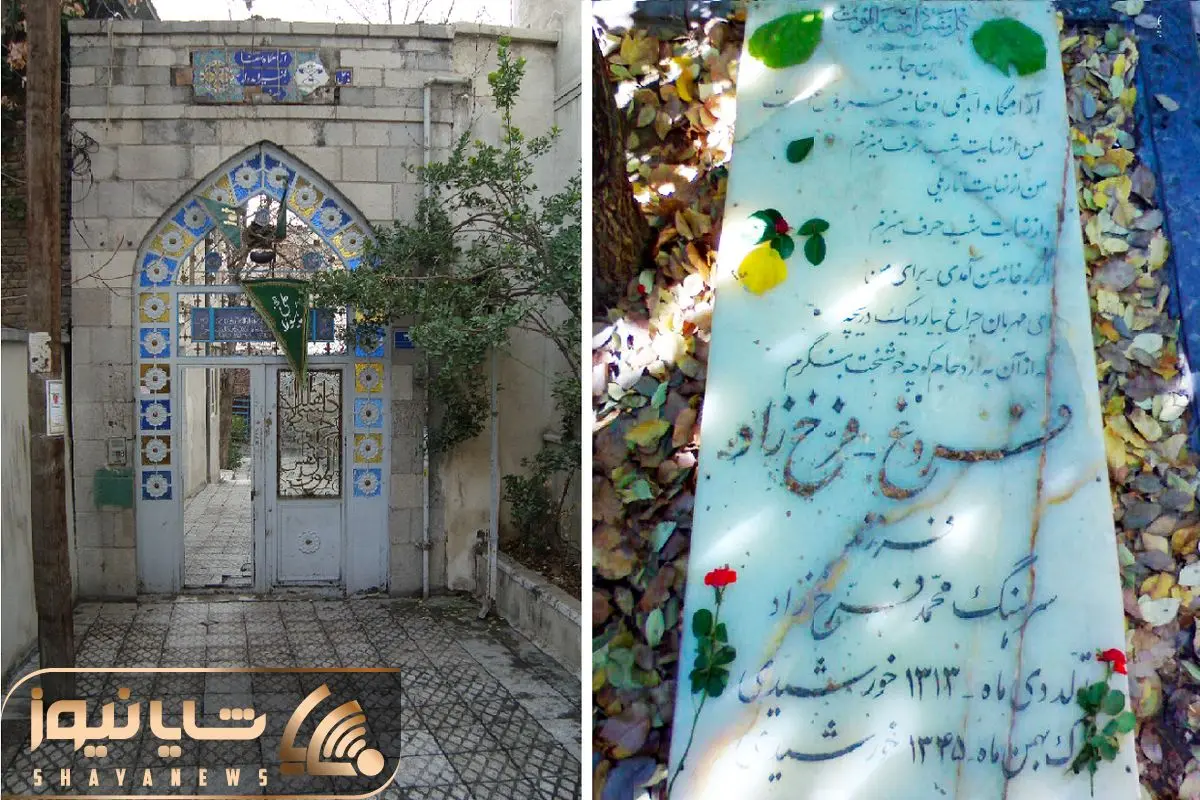 علی
شایانیوز
SHAYANEWS
کل نفس ذائقة الموت
این جا...
آرامگاه ابدی و خانه فروغ است
من از نهایت شب حرف میزنم
من از نهایت تاریکی
و از نهایت شب حرف میزنم
اگر به خانه من آمدی - برای من
ای مهربان چراغ بیار و یک دریچه
که از آن به ازدحام کوچه خوشبخت بنگرم
فروغ - فرخ زاد
فرزند
سرهنگ محمد فرخ زاد
تولد دی ماه - ۱۳۱۳ خورشیدی
بهمن ماه - ۱۳۴۵ خورشیدی